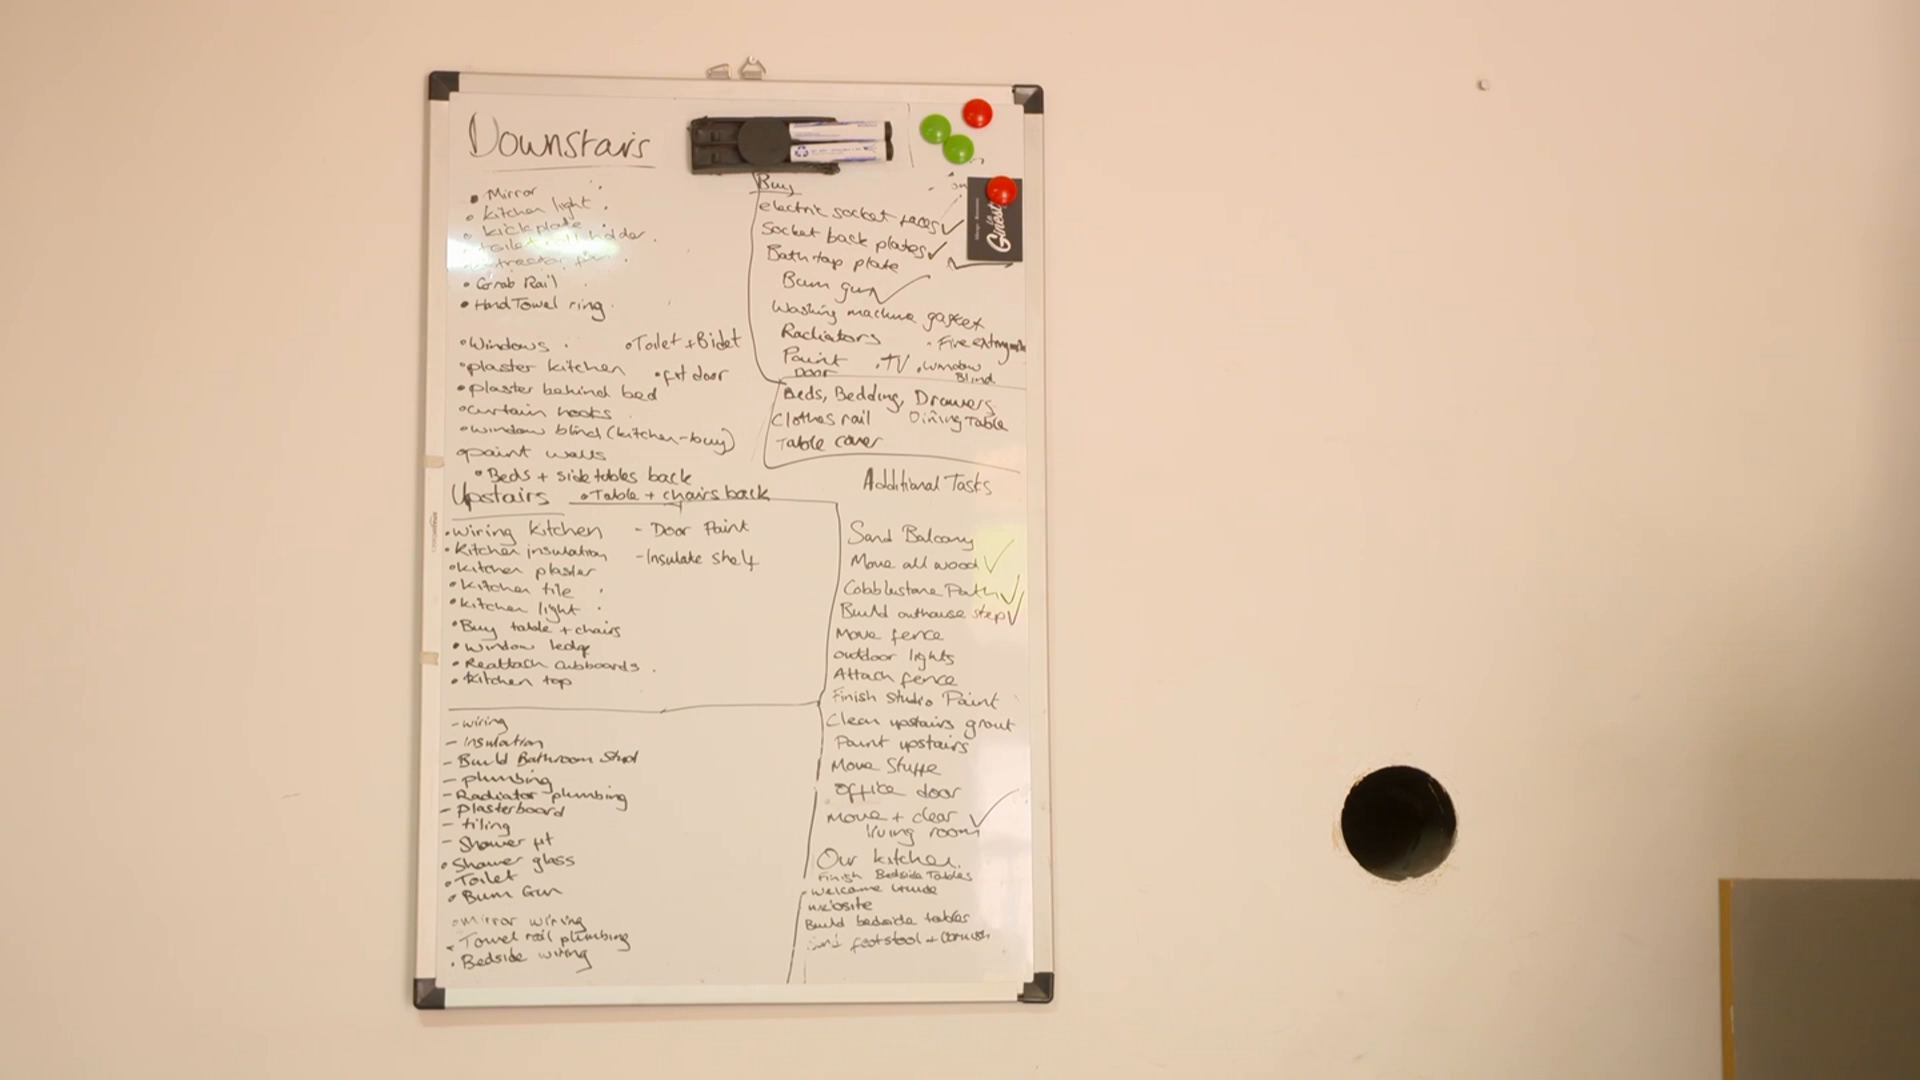 Downstairs
• Mirror
• Kitchen light
• kickplate
• toilet roll holder
• Grab Rail
• Hand Towel ring
• Windows
• Toilet + Bidet
• plaster kitchen
• fit door
• plaster behind bed
• curtain hooks
• window blind (kitchen-buy)
• paint walls
• Beds + side tables back
• Table + chairs back
Buy
electric socket faces ✓
Socket back plates ✓
Bath tap plate ✓
Bum gun ✓
Washing machine gasket
Radiators
Paint
• TV
• Window Blind
Door
Beds, Bedding, Drawers
Clothes rail
Dining Table
Table cover
Upstairs
• Wiring kitchen
- Door Paint
• Kitchen insulation
- Insulate shelf
• Kitchen plaster
• Kitchen tile
• Kitchen light
• Buy table + chairs
• Window ledge
• Reattach cubboards
• Kitchen top
- wiring
- Insulation
- Build Bathroom Stud
- plumbing
- Radiator plumbing
- Plasterboard
- tiling
- Shower fit
• Shower glass
• Toilet
• Bum Gun
• Mirror wiring
• Towel rail plumbing
• Bedside wiring
Additional Tasks
Sand Balcony
Move all wood ✓
Cobblestone Path ✓
Build outhouse step ✓
Move fence
outdoor lights
Attach fence
Finish Studio Paint
Clean upstairs grout
Paint upstairs
Move Stuff
office door
Move + clear ✓
living room
Our kitchen
Finish Bedside Tables
• Welcome Guide
website
Build bedside tables
footstool +